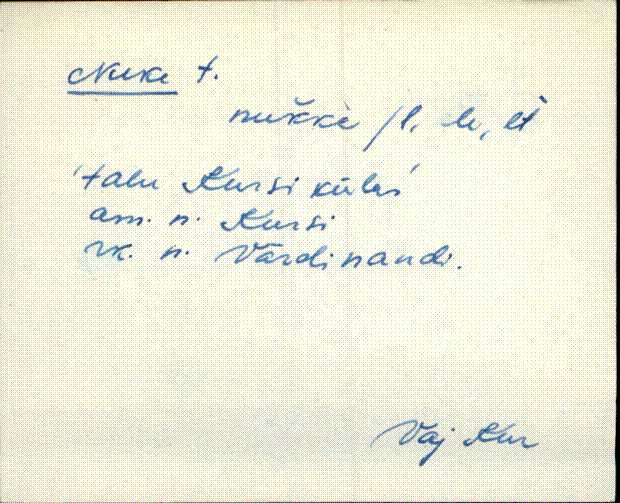 Nuke t.
nukkè /l. le, lt
'talu Kursi külas'
am. n. Kursi
rk. n. Värdinandi.
Vaj Kur